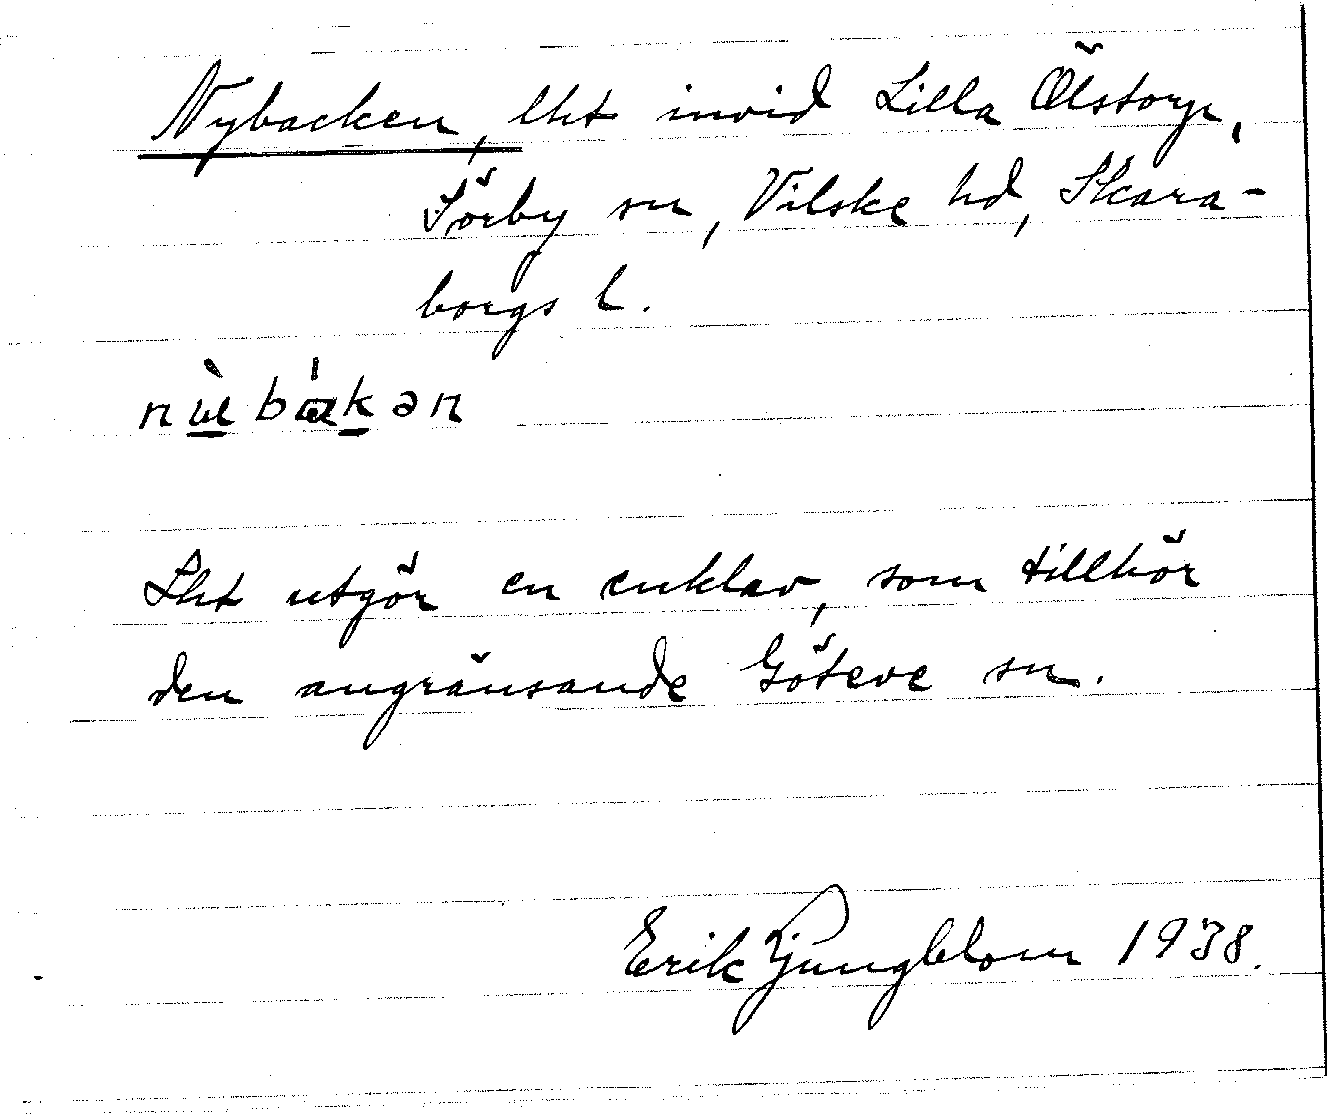 Nybacken, lht invid Lilla Ölstorp,
Sörby sn, Vilske hd, Skara-
borgs l.
Lht utgör en enklav, som tillhör
den angränsande Göteve sn.
Erik Ljungblom 1938.